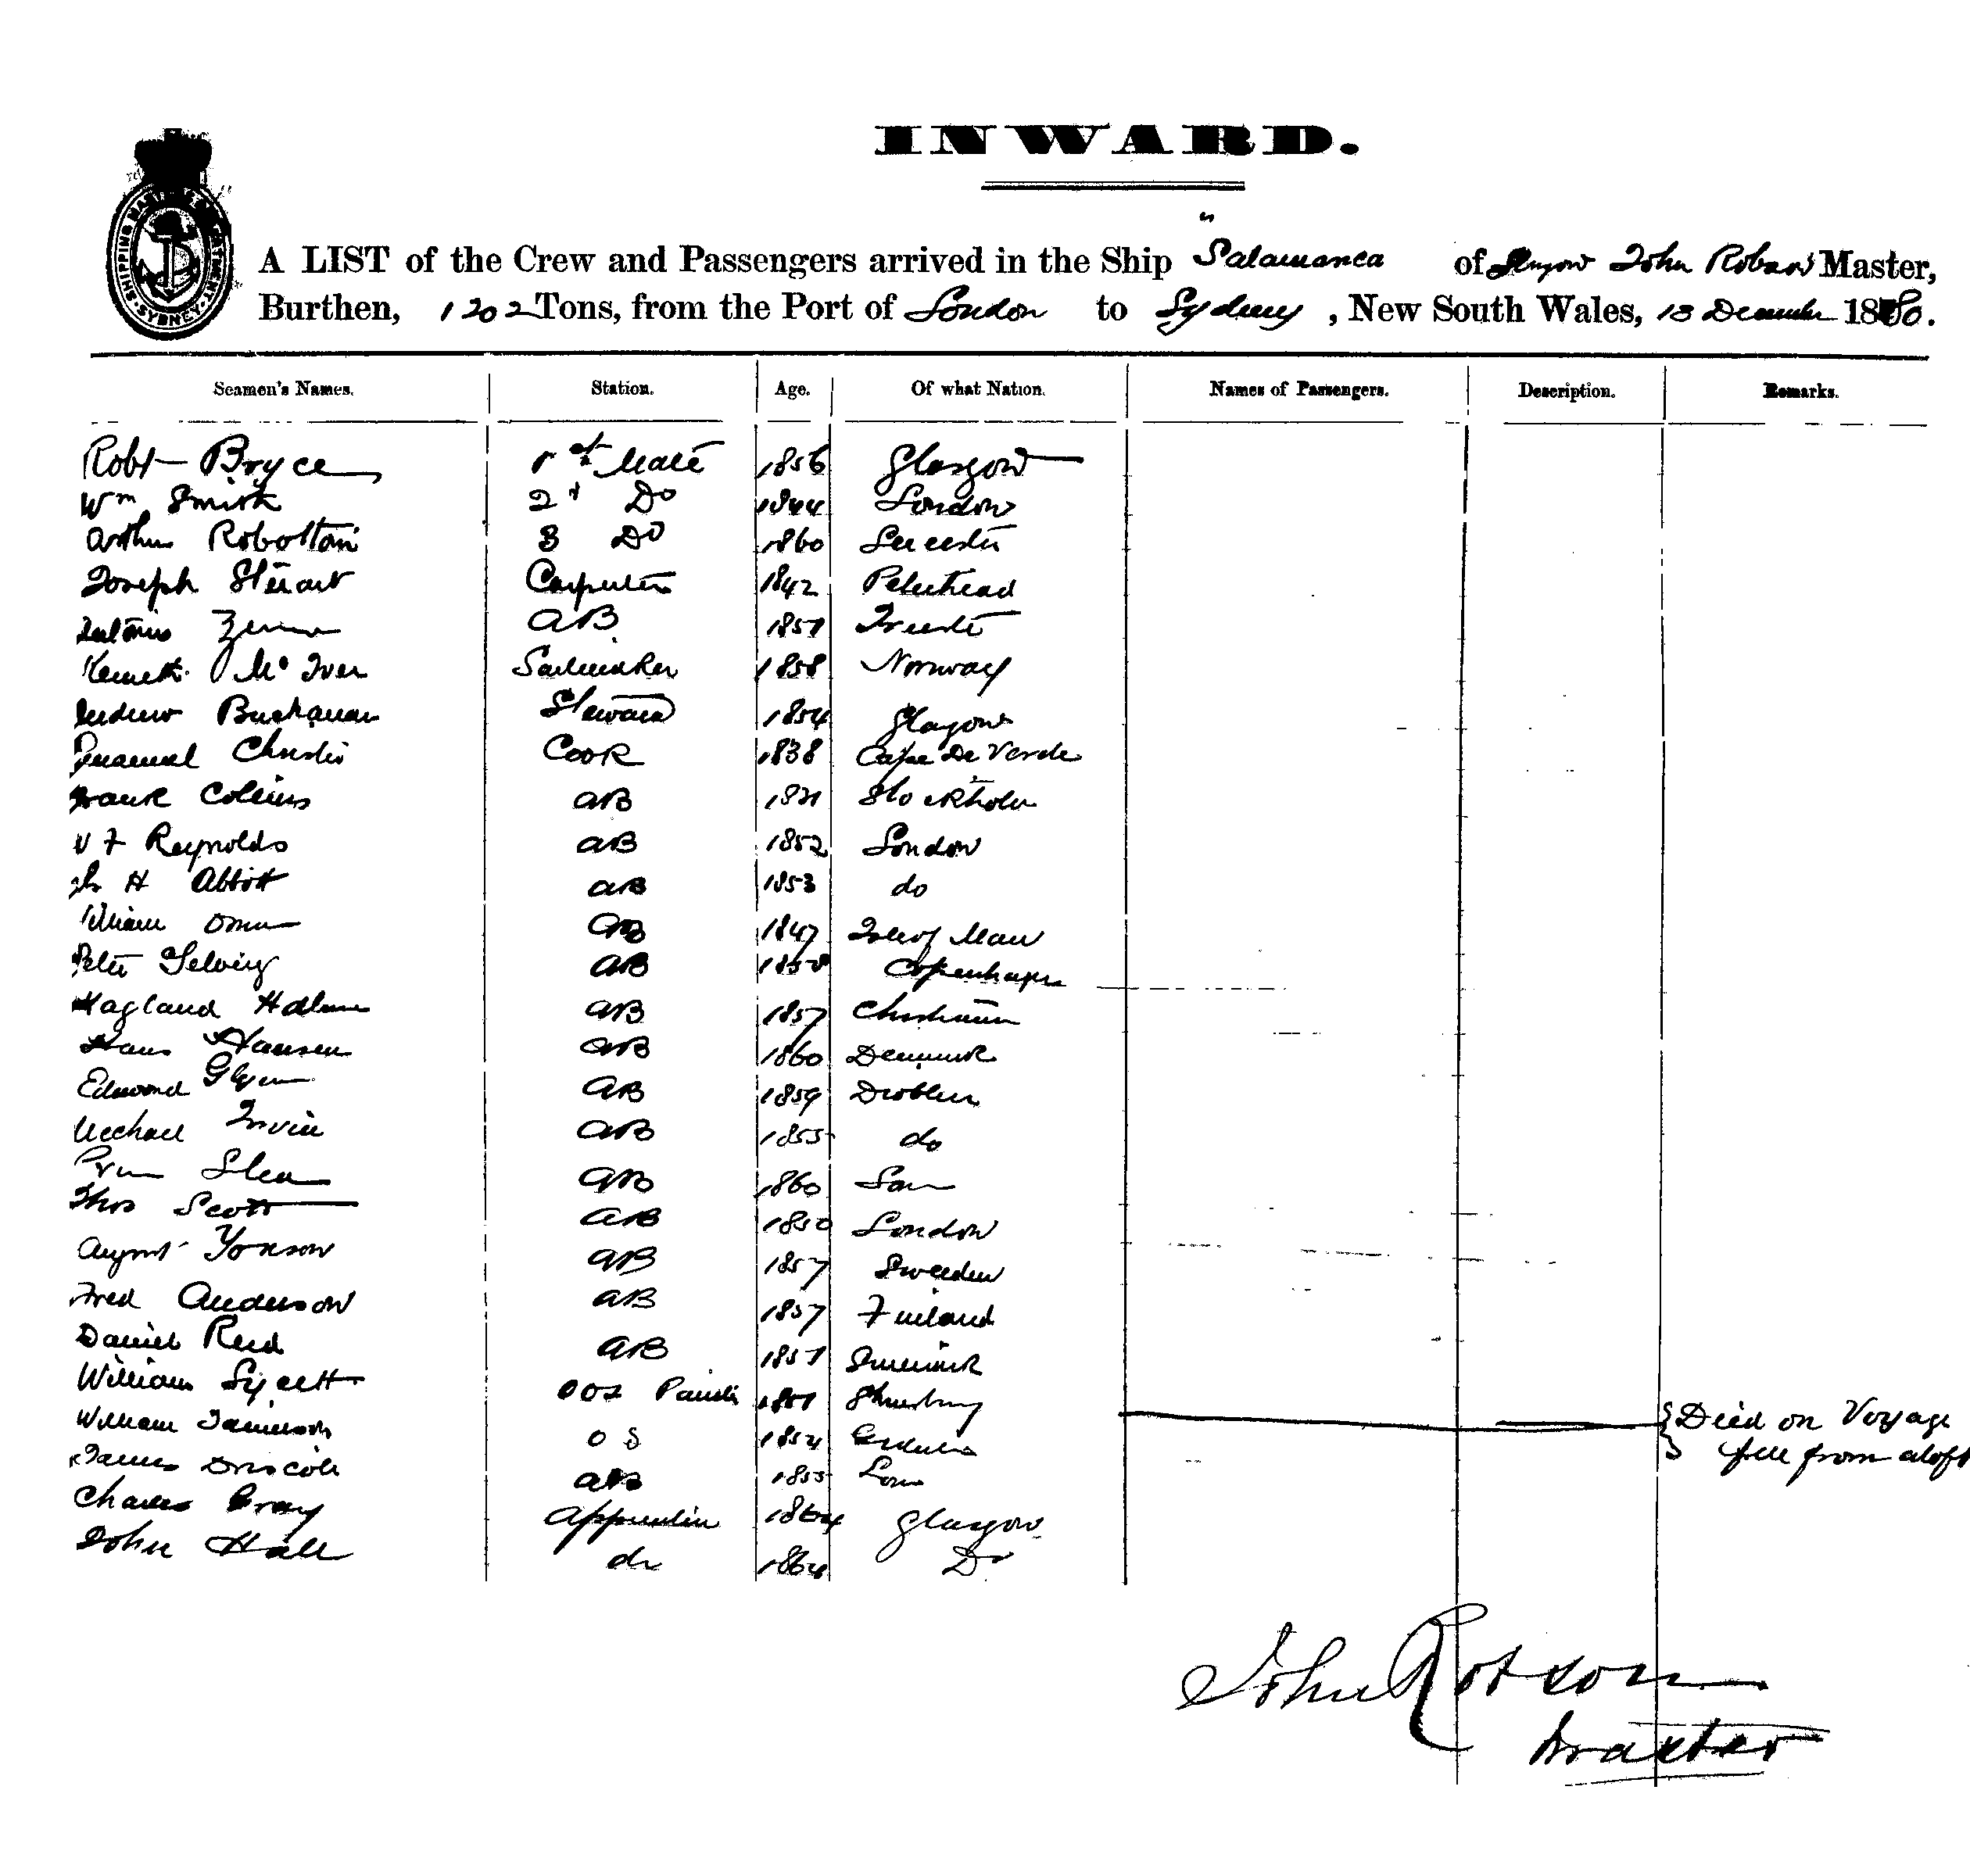 INWARD.
SHIPPING MASTER'S DEPARTMENT SYDNEY
A LIST of the Crew and Passengers arrived in the Ship "Salamanca of John Robson Master,
Burthen, 1202 Tons, from the Port of London to Sydney, New South Wales, 13 December 1880.
Seamen's Names. Station. Age. Of what Nation. Names of Passengers. Description. Remarks.
Robt Bryce 1st Mate 1856 Glasgow
Wm Smith 2d Do 1844 London
Arthur Robottom 3 Do 1860 Leicester
Joseph Stewart Carpenter 1842 Peterhead
AB 1857 Trieste
Kenneth McIver Sailmaker 1858 Norway
Andrew Buchanan Steward 1854 Glasgow
Emanuel Christie Cook 1838 Cape De Verde
Frank Collins AB Stockholm
W F Reynolds AB 1852 London
H Abbott AB 1853 do
William AB 1847 Isle of Man
Peter AB 1858 Copenhagen
Hagland AB 1857
Hans Hansen AB 1860 Denmark
Edward Glynn AB 1859 Dublin
Michael Irvin AB 1855 do
Shea AB 1860
Thos Scott AB 1850 London
August Yonson AB 1857 Sweden
Fred Anderson AB 1857 Finland
Daniel Reid AB 1857
William Lycett
William Jamieson OS 1854 Died on Voyage
fell from aloft
James Driscoll AB 1855
Charles Gray Apprentice 1864 Glasgow
John Hall do 1864 Do
John Robson
Master